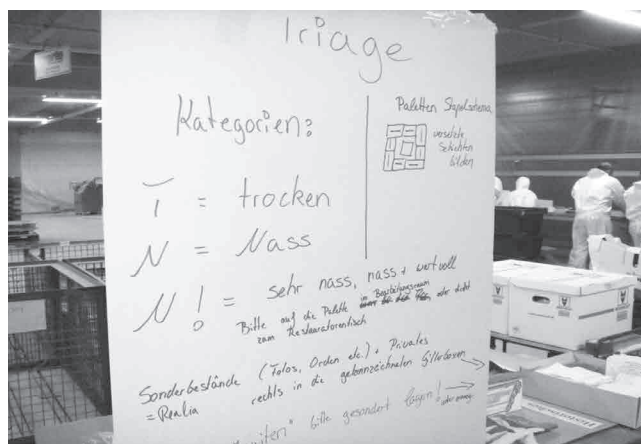 Triage
Kategorien:
T = trocken
N = Nass
N! = sehr nass, nass + wertvoll
Bitte auf die Palette in Bearbeitungsraum
oder direkt
zum Restauratorentisch
Sonderbestände (Fotos, Orden etc.) + Privates
= Realia rechts in die gekennzeichneten Gitterboxen
bitte gesondert legen!
Paletten Stapelschema
versetzte
Schichten
bilden